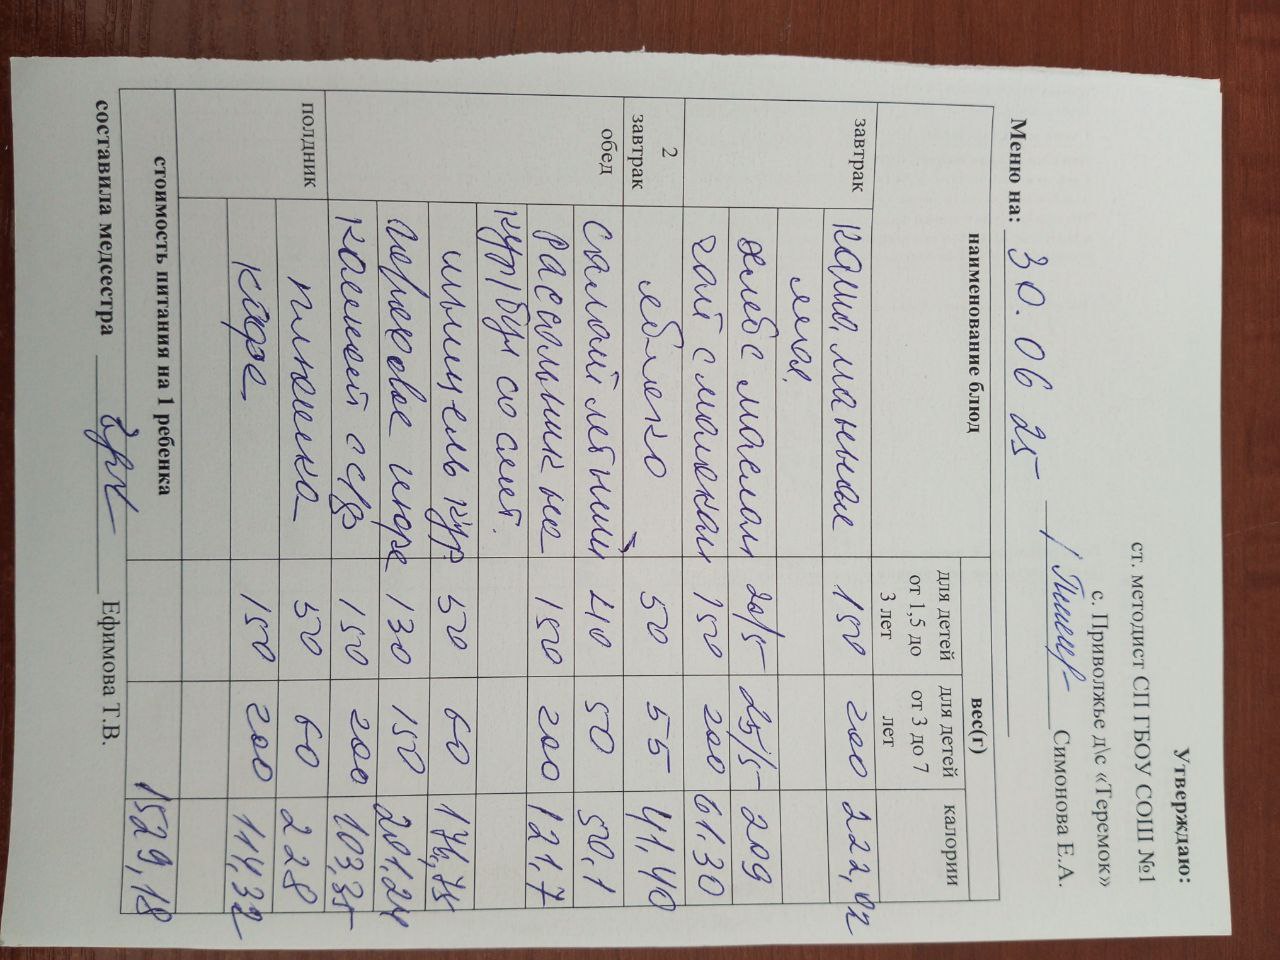 Утверждаю:
ст. методист СП ГБОУ СОШ №1
с. Приволжье д\с «Теремок»
Симонова Е.А.
Меню на: 30.06 25
наименование блюд вес(г) калории
для детей от 1,5 до 3 лет для детей от 3 до 7 лет
завтрак каша манная 150 200 222,02
хлеб с маслом 20/5 25/5 209
чай с молоком 150 200 61.30
2 завтрак яблоко 50 55 41,40
обед салат летний 40 50 50,1
рассольник на 150 200 121,7
кур/бул со смет.
шницель кур 50 60 176,75
гороховое пюре 130 150 201,24
компот с с/ф 150 200 103,35
полдник плюшка 50 60 228
кофе 150 200 114,32
стоимость питания на 1 ребенка 1529,18
составила медсестра Ефимова Т.В.